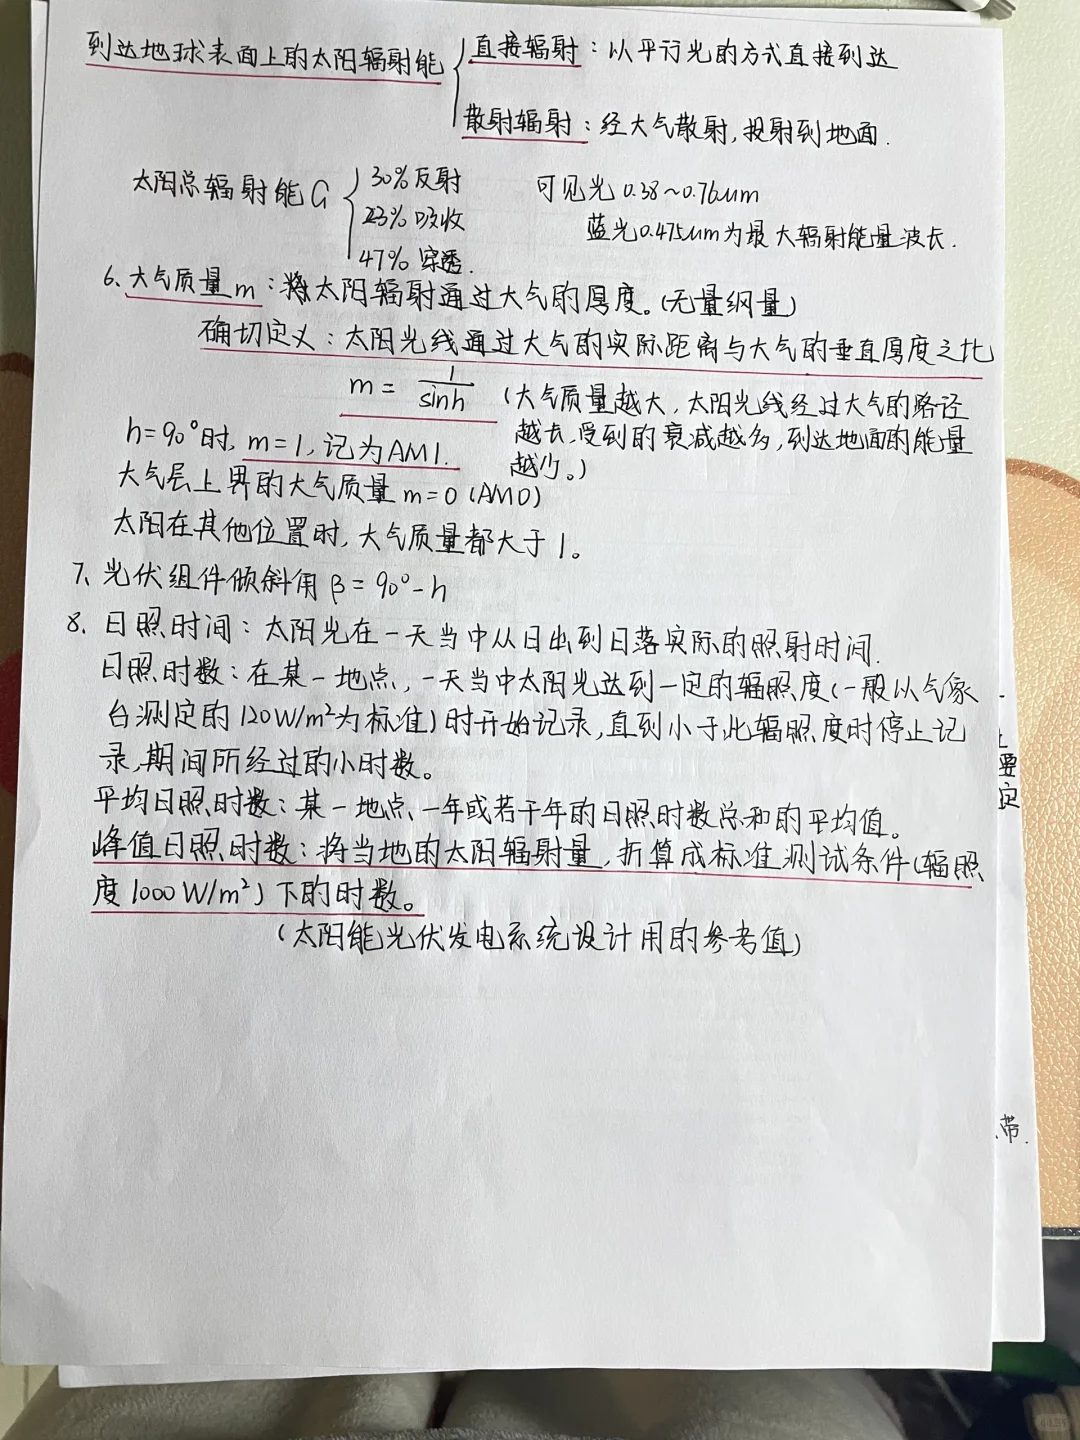 到达地球表面上的太阳辐射能 { 直接辐射：以平行光的方式直接到达
散射辐射：经大气散射,投射到地面.
太阳总辐射能G { 30%反射
23%吸收
47%穿透.
可见光0.38~0.76μm
蓝光0.475μm为最大辐射能量波长.
6、大气质量m：将太阳辐射通过大气的厚度。(无量纲量)
确切定义：太阳光线通过大气的实际距离与大气的垂直厚度之比
m = 1/sinh
(大气质量越大,太阳光线经过大气的路径
越长,受到的衰减越多,到达地面的能量
越少。)
h=90°时, m=1,记为AM1.
大气层上界的大气质量m=0(AM0)
太阳在其他位置时,大气质量都大于1。
7、光伏组件倾斜角β=90°-h
8、日照时间：太阳光在一天当中从日出到日落实际的照射时间.
日照时数：在某一地点,一天当中太阳光达到一定的辐照度(一般以气象
台测定的120W/m²为标准)时开始记录,直到小于此辐照度时停止记
录,期间所经过的小时数。
平均日照时数：某一地点、一年或若干年的日照时数总和的平均值。
峰值日照时数：将当地的太阳辐射量,折算成标准测试条件(辐照
度1000W/m²)下的时数。
(太阳能光伏发电系统设计用的参考值)
要
定
带.